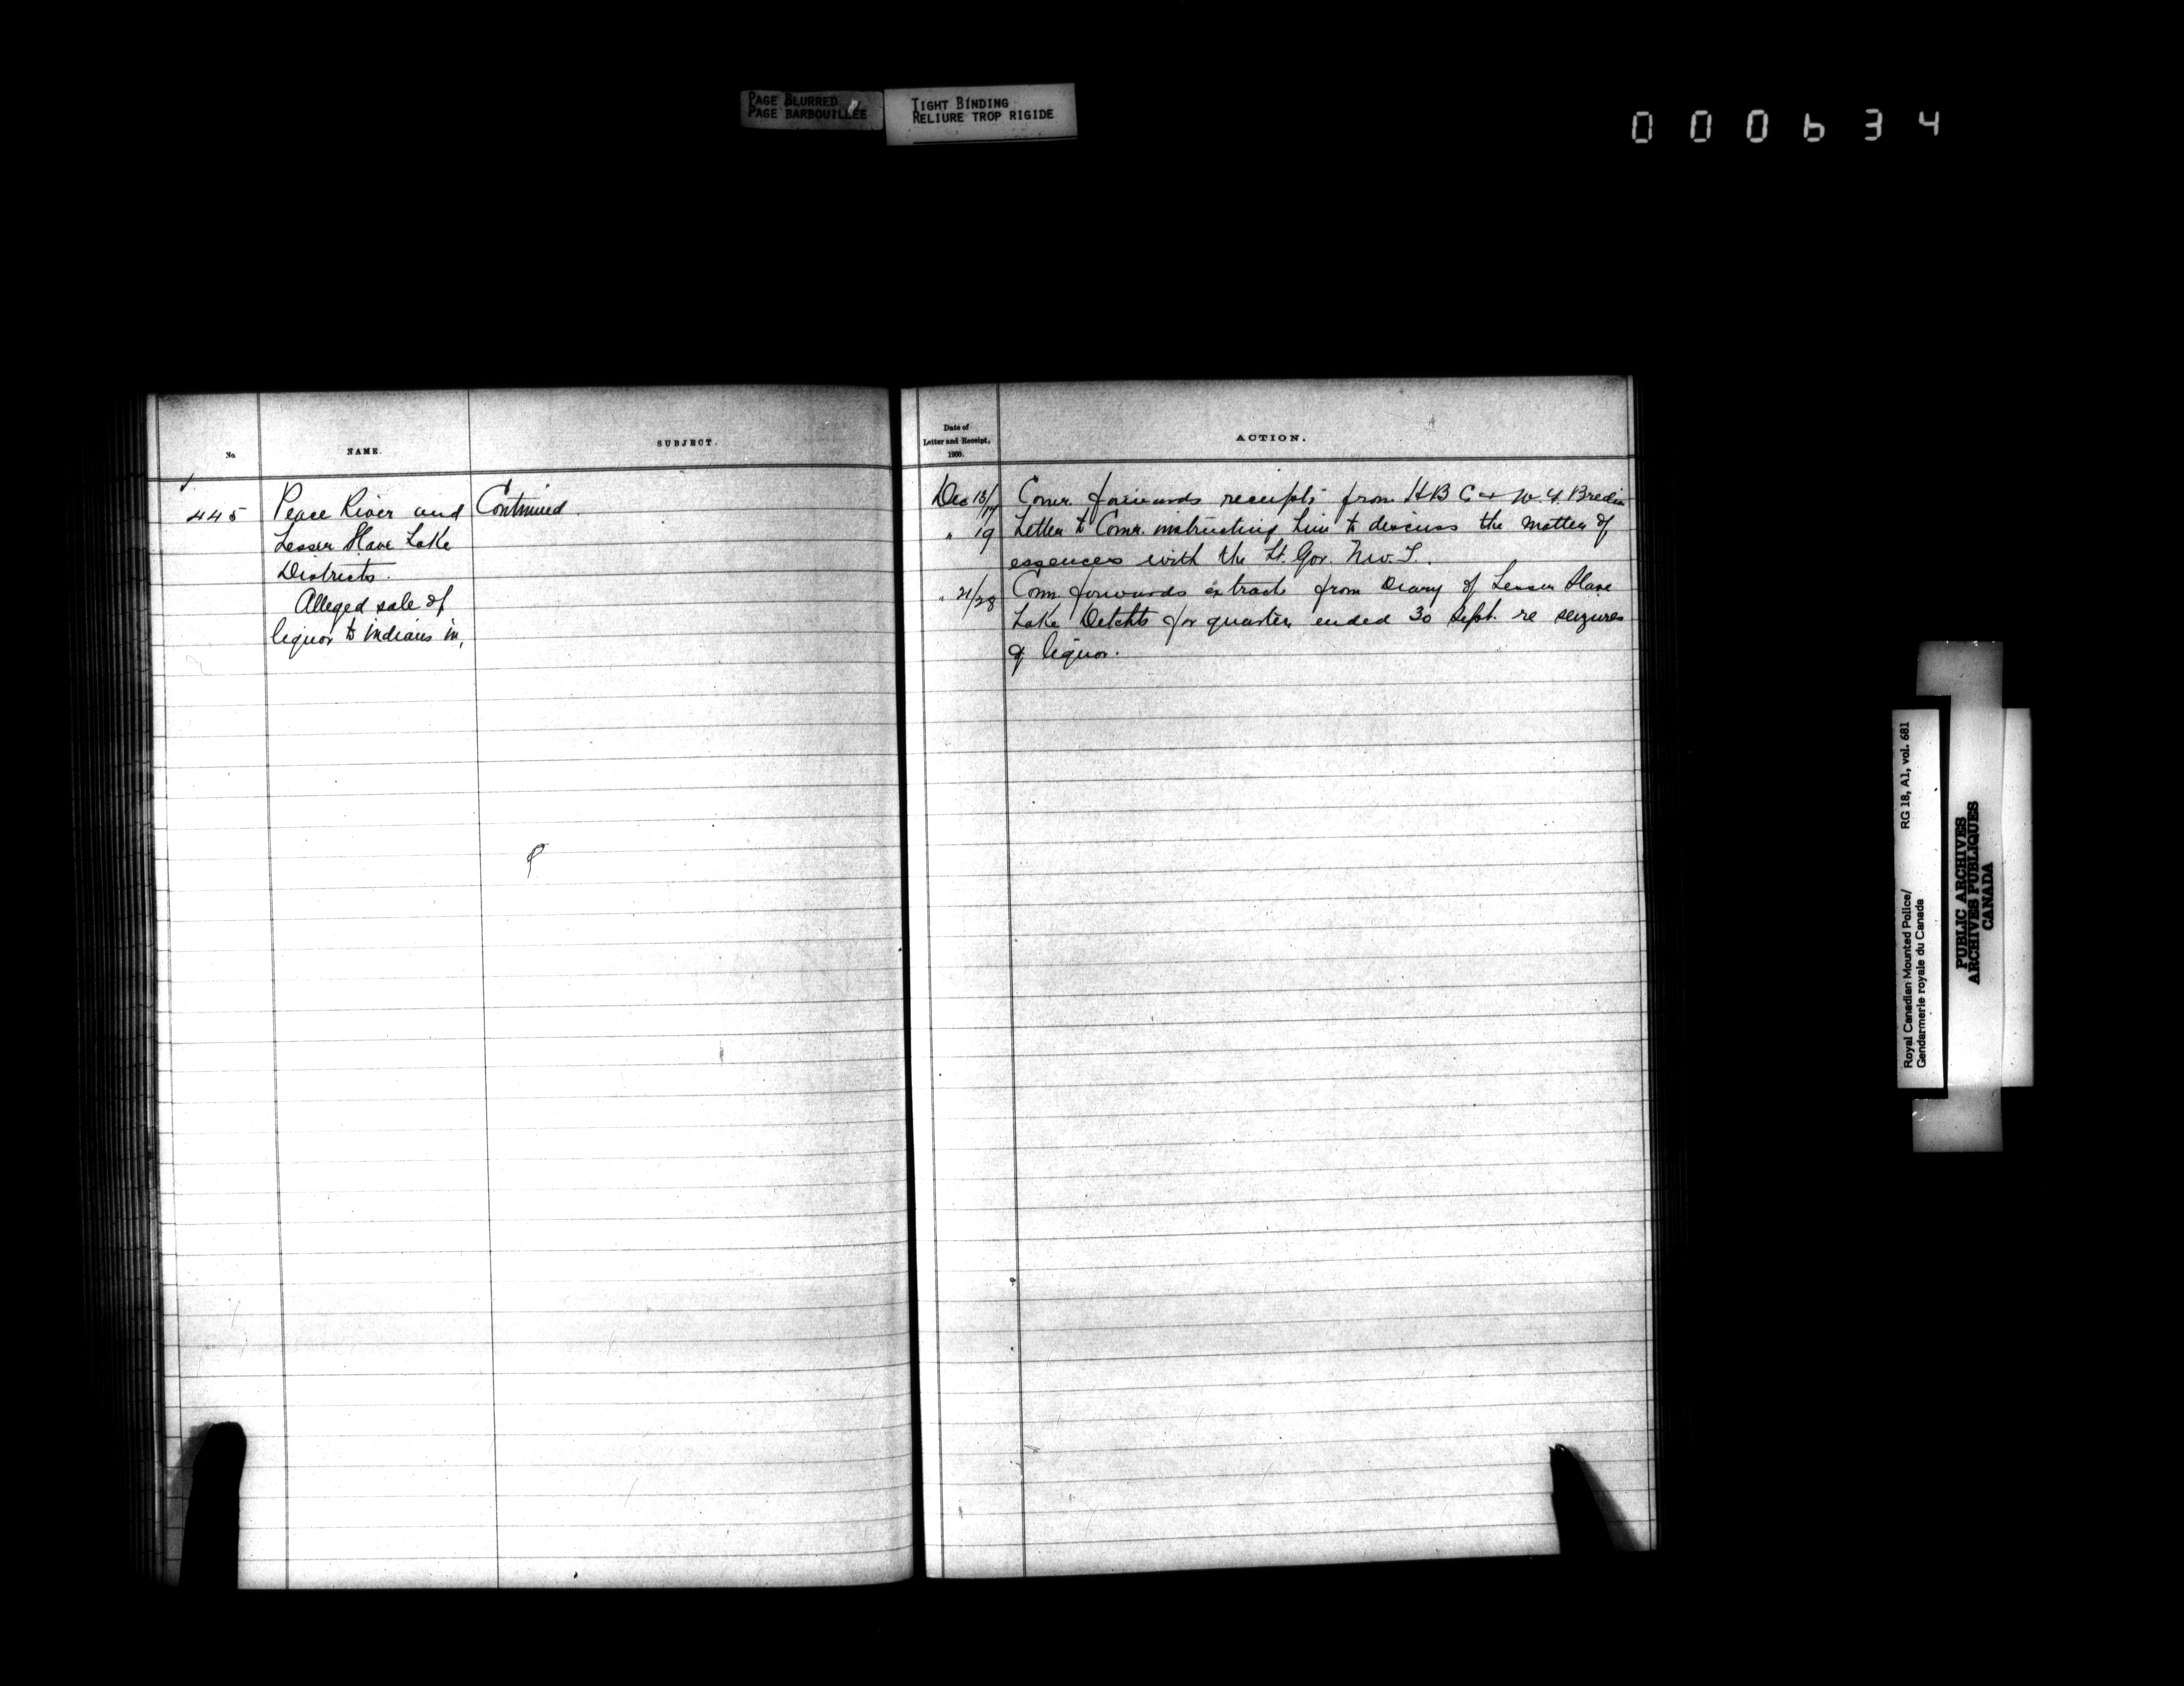 PAGE BLURRED
PAGE BARBOUILLÉE
TIGHT BINDING
RELIURE TROP RIGIDE
000634
No
NAME.
SUBJECT.
445
Peace River and
Lesser Slave Lake
Districts.
Alleged sale of
liquor to indians in,
Continued.
Date of
Letter and Receipt,
1900.
ACTION.
Dec 13/17 Comr. forwards receipts from H B C + W. F. Bredin
" 19 Letter to Comr. instructing him to discuss the matter of
essences with the Lt. Gov. N.W.T.
" 21/28 Comr. forwards extracts from Diary of Lesser Slave
Lake Detchts for quarter ended 30 Sept. re seizures
of liquor.
Royal Canadian Mounted Police/ RG 18, A1, vol. 681
Gendarmerie royale du Canada
PUBLIC ARCHIVES
ARCHIVES PUBLIQUES
CANADA